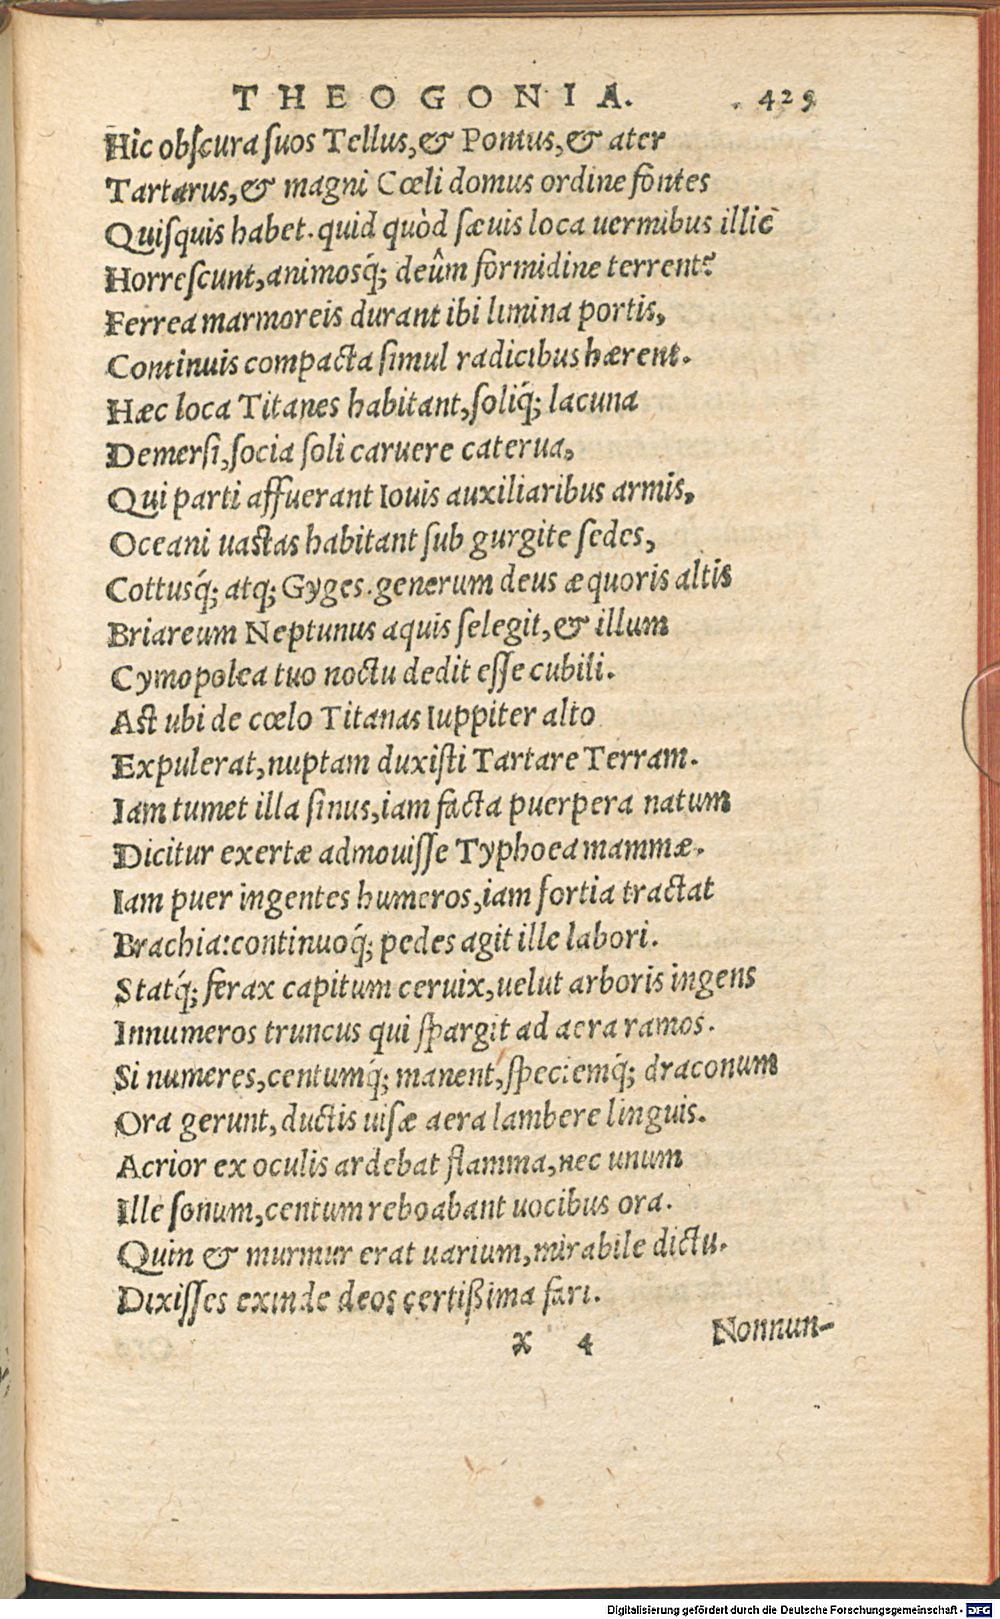 THEOGONIA. 429
Hic obscura suos Tellus, & Pontus, & ater
Tartarus, & magni Cœli domus ordine fontes
Quisquis habet. quid quòd sæuis loca uermibus illic
Horrescunt, animosq́; deûm formidine terrent?
Ferrea marmoreis durant ibi limina portis,
Continuis compacta simul radicibus hærent.
Hæc loca Titanes habitant, soliq́; lacuna
Demersi, socia soli caruere caterua,
Qui parti affuerant Iouis auxiliaribus armis,
Oceani uastas habitant sub gurgite sedes,
Cottusq́; atq; Gyges. generum deus æquoris altis
Briareum Neptunus aquis selegit, & illum
Cymopolea tuo noctu dedit esse cubili.
Ast ubi de cœlo Titanas Iuppiter alto
Expulerat, nuptam duxisti Tartare Terram.
Iam tumet illa sinus, iam facta puerpera natum
Dicitur exertæ admouisse Typhoea mammæ.
Iam puer ingentes humeros, iam fortia tractat
Brachia: continuoq́; pedes agit ille labori.
Statq́; ferax capitum ceruix, uelut arboris ingens
Innumeros truncus qui spargit ad aera ramos.
Si numeres, centumq́; manent, speciemq́; draconum
Ora gerunt, ductis uisæ aera lambere linguis.
Acrior ex oculis ardebat flamma, nec unum
Ille sonum, centum reboabant uocibus ora.
Quin & murmur erat uarium, mirabile dictu.
Dixisses exinde deos certißima fari.
x 4 Nonnun-
Digitalisierung gefördert durch die Deutsche Forschungsgemeinschaft - DFG